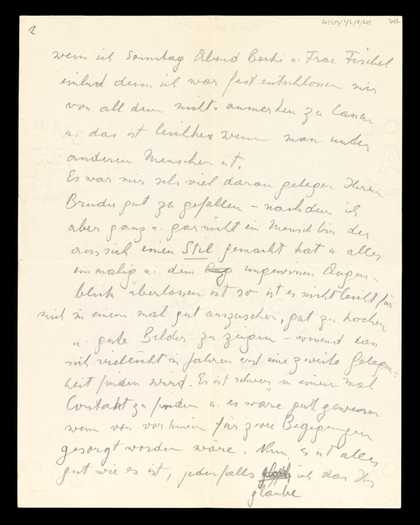 2
wenn ich Sonntag Abend Beckes u. Frau Fischel
einlud denn ich war fest entschlossen mir
von all dem nichts anmerken zu lassen
u. das ist leichter wenn man unter
anderen Menschen ist.
Es war mir sehr viel daran gelegen Ihrem
Bruder gut zu gefallen – nachdem ich
aber ganz u. gar nicht ein Mensch bin der
aus sich einen Stil gemacht hat u. alles
einmalig u. dem ungewissen Augen-
blick überlassen ist so ist es nicht leicht für
mich in einem mal gut auszusehen, gut zu kochen
u. gute Bilder zu zeigen – während man
sich vielleicht in Jahren erst eine zweite Gelegen-
heit finden wird. Es ist schwer in einem mal
Contakt zu finden u. es wäre gut gewesen
wenn von vorherein für zwei Begegnungen
gesorgt worden wäre. Nun, es ist alles
gut wie es ist, jedenfalls ich das Ihr
glaube